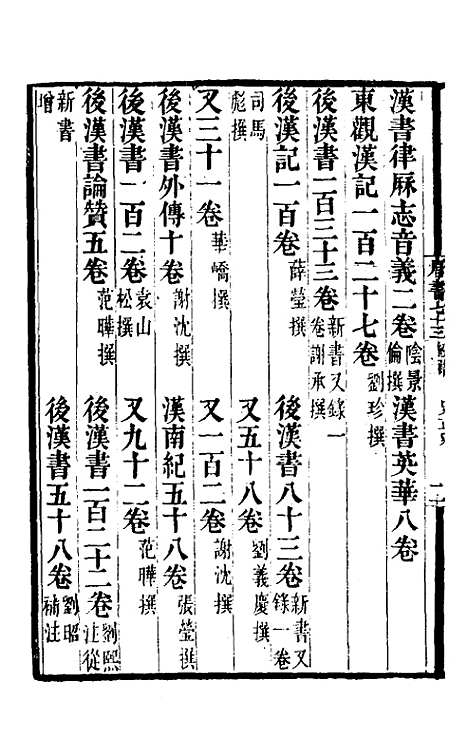 漢書律厤志音義二卷陰景倫撰漢書英華八卷
東觀漢記一百二十七卷劉珍撰
後漢書一百三十三卷新書又錄一卷謝承撰
後漢記一百卷薛瑩撰後漢書八十三卷新書又錄一卷
司馬彪撰又五十八卷劉義慶撰
又三十一卷華嶠撰又一百二卷謝沈撰
後漢書外傳十卷謝沈撰漢南紀五十八卷張瑩撰
後漢書一百二卷袁山松撰又九十二卷范曄撰
後漢書論贊五卷范曄撰後漢書一百二十二卷劉熙注從
新書增後漢書五十八卷劉昭補注